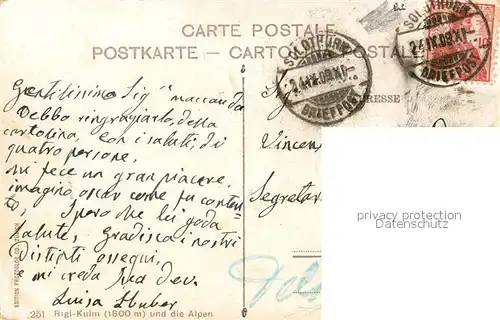 CARTE POSTALE
POSTKARTE - CARTOLINA POSTALE
SOLOTHURN
24.IX.09.XI-
BRIEFPOST
SOLOTHURN
24.IX.09.XI-
BRIEFPOST
10
ADRESSE
Gentilissimo Sig
Debbo ringraziarlo, della
cartolina, con i saluti, di
quattro persone,
mi fece un gran piacere,
imagino, oscar come fu conten-
to, Spero che lei goda
salute, Gradisca i nostri
Distinti ossequi,
mi creda Sua dev.
Luisa Huber
Vincen
Segretar
privacy protection
Datenschutz
251 Rigi-Kulm (1800 m) und die Alpen